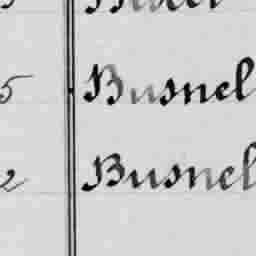 5 Busnel
2 Busnel